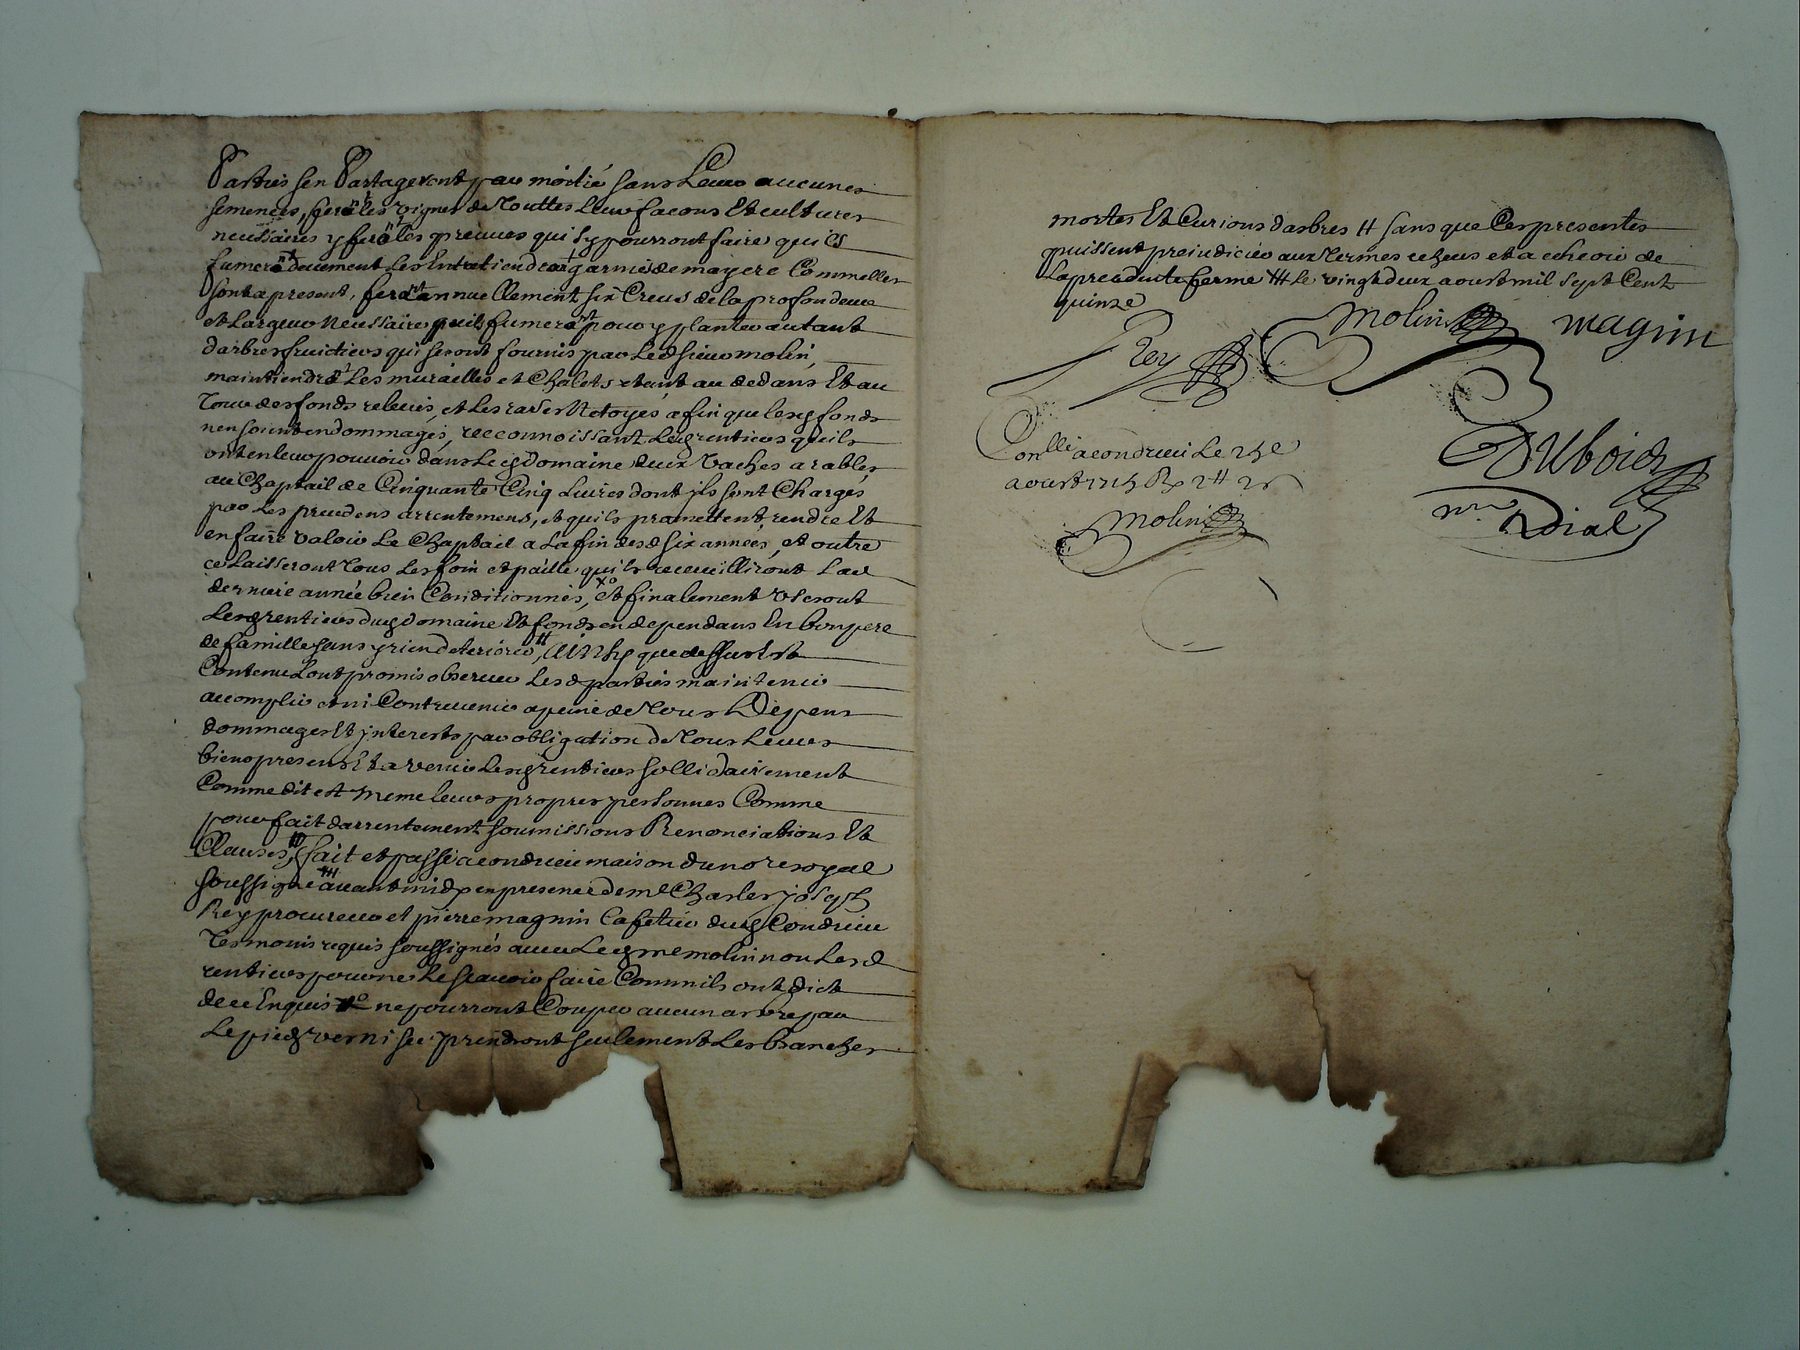 Parties sen Partageront par moitié sans Lever aucunes
semences, feront les vignes de Touttes Leur facons Et cultures
necessaires y feront les preuues quil y pourront faire quils
fumeront deuement Les Entretiendront garnies de mayere Comme elles
sont a present, feront annuellement six Creus de la profondeur
et Largeur Necessaire quils fumeront pour y planter autant
darbres fruictiers qui seront fournis par Led sieur molin,
maintiendront Les murailles et Chalets etant au dedans Et au
Tour des fonds releués, et Les rases Netoyés afin que lesd fonds
nen soient endommagés, reconnoissant Lesd rentiers quils
ont en leur pouuoir dans Led Domaine deux Vaches arables
au Chaptail de Cinquante Cinq Liures dont ils sont Chargés
par Les precedens arrentemens, et quils promettent rendre Et
en faire valoir Le Chaptail a La fin desd six années, et outre
ce Laisseront Tous Les foin et paille quils receuilliront Lad
derniere année bien Conditionnés, xo et finalement Vseront
Lesd rentiers dud Domaine Et fonds en dependans En bon pere
de famille sans y rien deteriorer, # Ainsy que dessus Est
Contenu Lont promis obseruer Lesd parties maintenir
accomplir et ni Contreuenir a peine de Tous Depens
dommages Et jnterests par obligation de Tous Leurs
biens presens Et a venir Lesd rentiers sollidairement
Comme dit est meme leurs propres personnes Comme
pour fait darrentement soumissions Renonciations Et
Clauses, # fait et passé a condrieu maison du no.re royal
soussigné ## auant midy en presence de me Charles joseph
Rey procureur et pierre magnin Cafetier dud Condrieu
Tesmoins requis soussignés auec Led sr me molin non Lesd
rentiers pour ne Le scauoir faire Comm ils ont dict
de ce Enquis xo ne pourront Couper aucun arbre par
Le pied verni sec prendront seulement Les branches
mortes Et Curions darbres # sans que Ces presentes
puissent prejudicier aux Termes echeus et a echeoir de
La precedente ferme ## Le vingt deux aoust mil sept Cent
quinze
Rey molin magnin
Conllé a condrieu Le 25e
aoust 1715 R
Dubois
molin
Dial